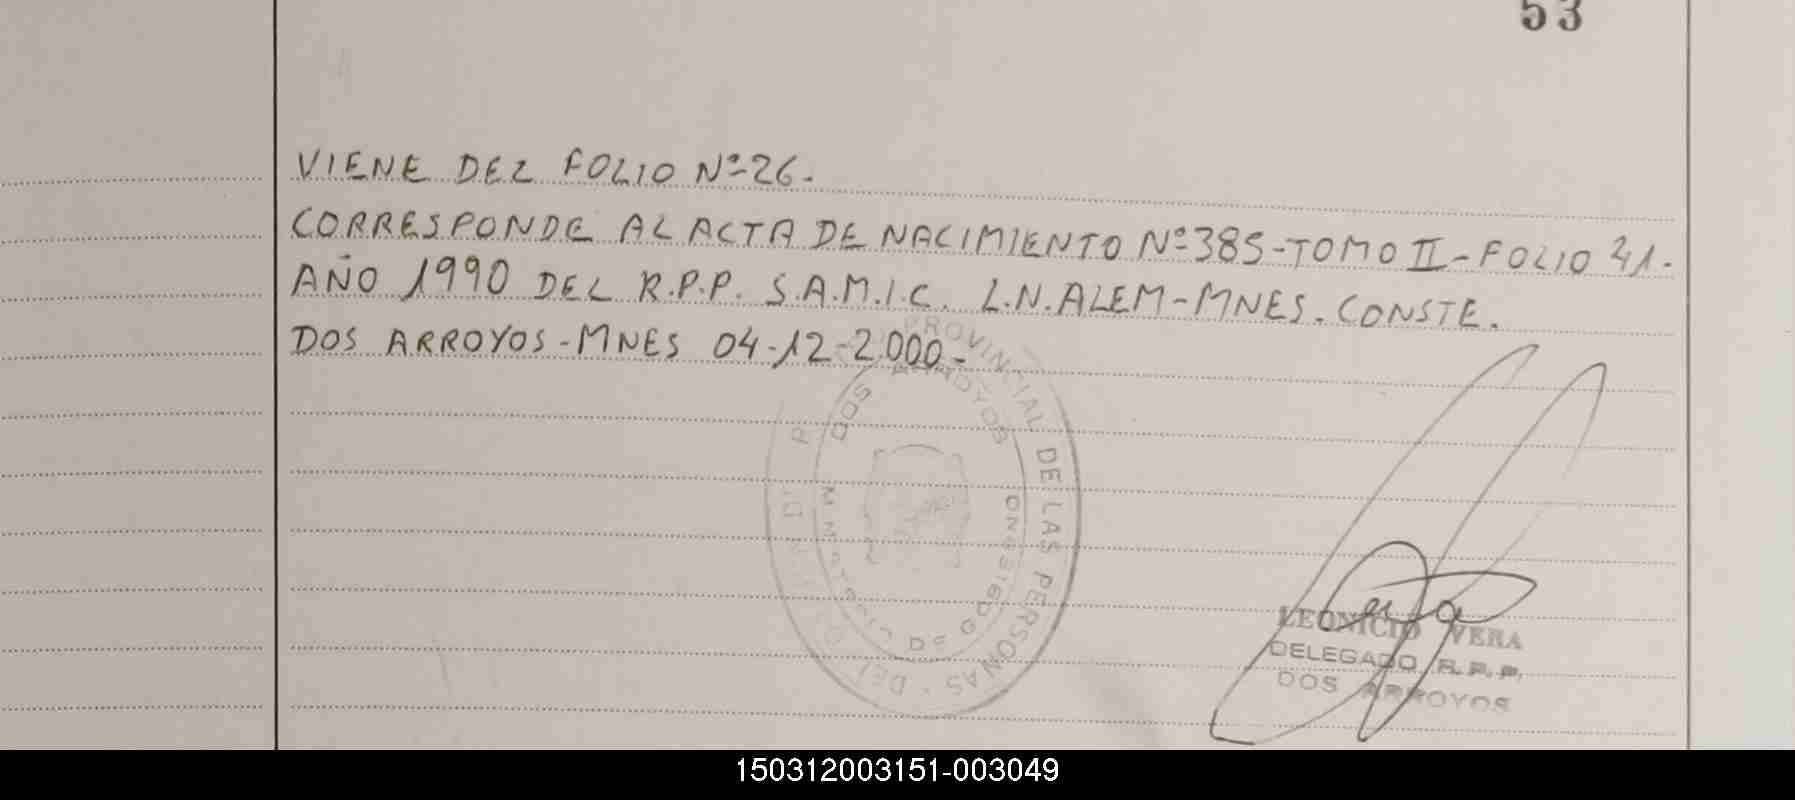 53
VIENE DEL FOLIO Nº 26.
CORRESPONDE AL ACTA DE NACIMIENTO Nº 385-TOMO II-FOLIO 41.
AÑO 1990 DEL R.P.P. S.A.M.I.C. L.N. ALEM-MNES. CONSTE.
DOS ARROYOS-MNES 04-12-2.000-
PROVINCIAL DE LAS PERSONAS - DEL
DOS ARROYOS
LEONICIO VERA
DELEGADO R.P.P.
DOS ARROYOS
150312003151-003049